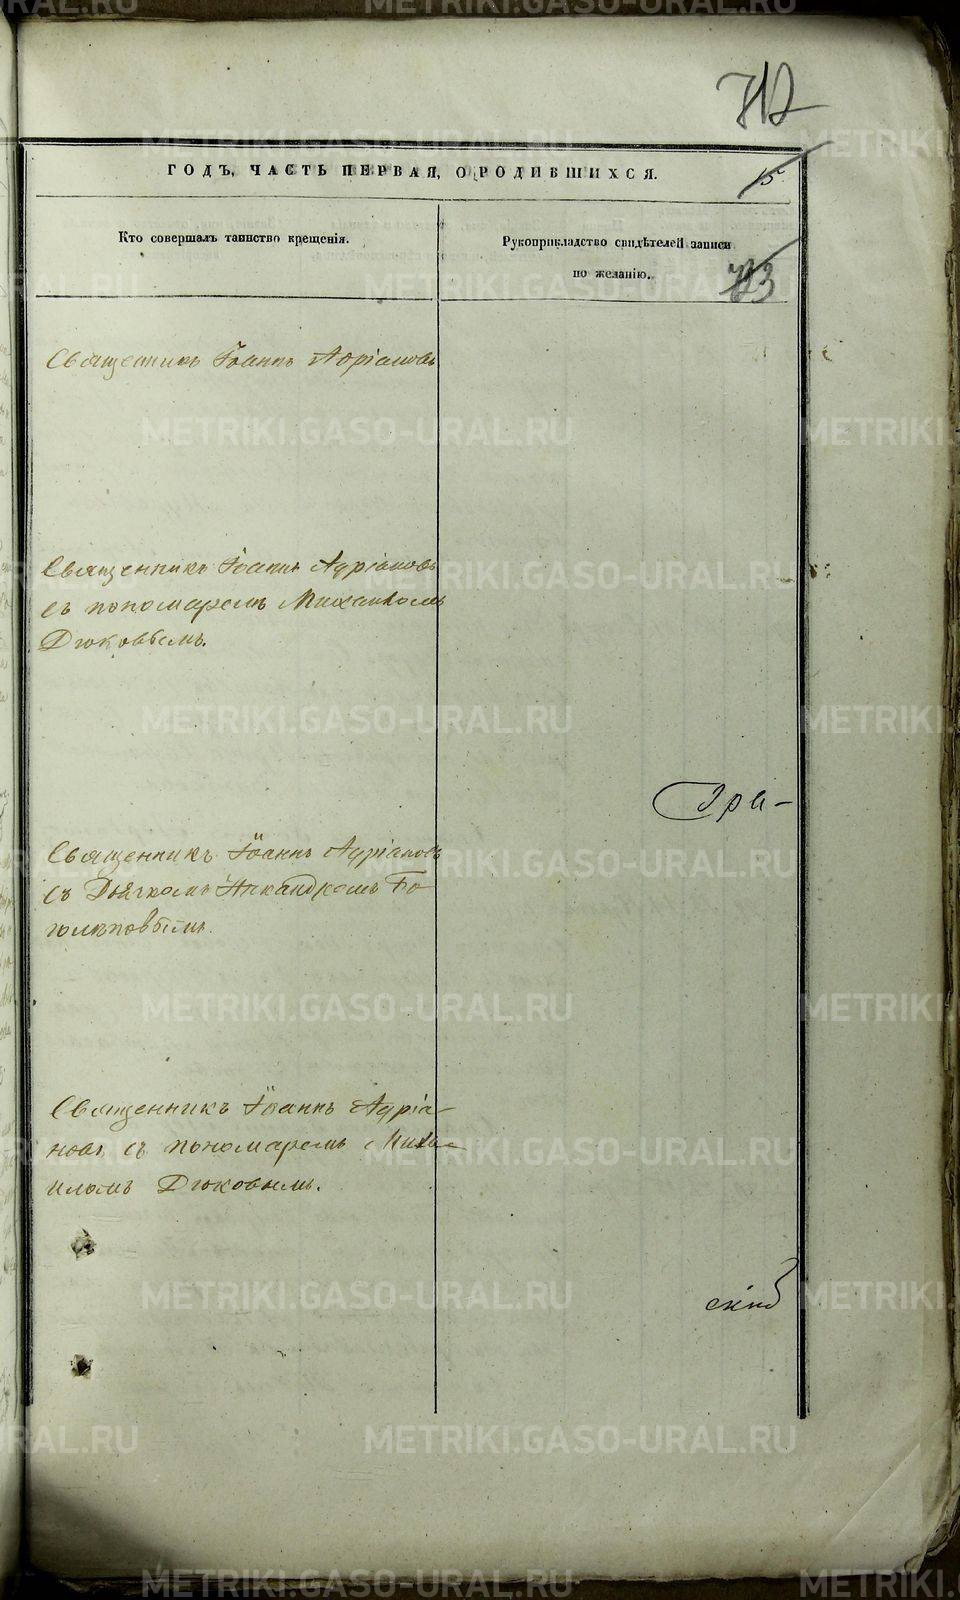 712
ГОДЪ, ЧАСТЬ ПЕРВАЯ, О РОДИВШИХСЯ.
15
Кто совершалъ таинство крещенія.
Рукоприкладство свидѣтелей записи
по желанію.
Священникъ Іоаннъ Адріановъ
Священникъ Іоаннъ Адріановъ
съ пономаремъ Михаиломъ
Дюковымъ.
Гри-
Священникъ Іоаннъ Адріановъ
съ Дьячкомъ Никандромъ Бо-
голѣповымъ.
Священникъ Іоаннъ Адріа-
новъ съ пономаремъ Миха-
иломъ Дюковымъ.
METRIKI.GASO-URAL.RU